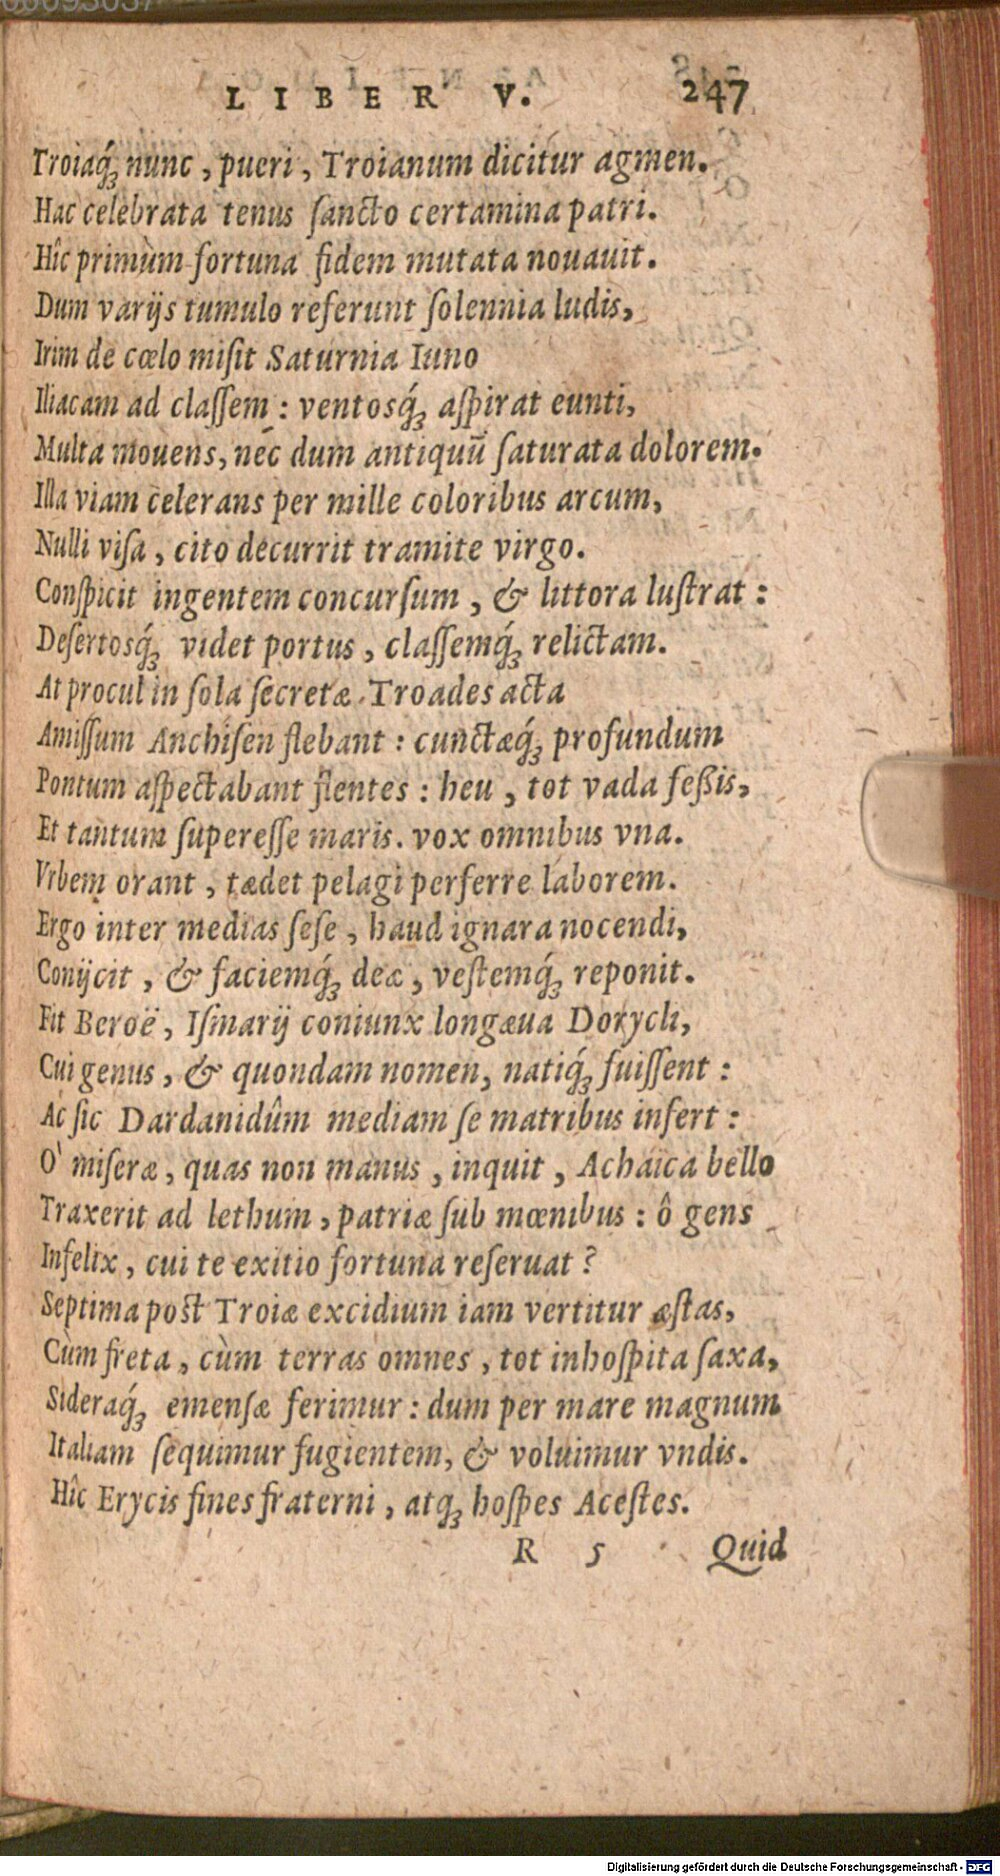 LIBER V. 247
Troiaq́ꝫ nunc, pueri, Troianum dicitur agmen.
Hac celebrata tenus ſancto certamina patri.
Hîc primùm fortuna fidem mutata nouauit.
Dum varijs tumulo referunt ſolennia ludis,
Irim de cœlo miſit Saturnia Iuno
Iliacam ad claſſem: ventosq́ꝫ aſpirat eunti,
Multa mouens, nec dum antiquũ ſaturata dolorem.
Illa viam celerans per mille coloribus arcum,
Nulli viſa, cito decurrit tramite virgo.
Conſpicit ingentem concurſum, & littora luſtrat:
Deſertosq́ꝫ videt portus, claſſemq́ꝫ relictam.
At procul in ſola ſecretæ Troades acta
Amiſſum Anchiſen flebant: cunctæq́ꝫ profundum
Pontum aſpectabant flentes: heu, tot vada feßis,
Et tantum ſupereſſe maris. vox omnibus vna.
Vrbem orant, tædet pelagi perferre laborem.
Ergo inter medias ſeſe, haud ignara nocendi,
Conijcit, & faciemq́ꝫ deæ, veſtemq́ꝫ reponit.
Fit Beroë, Iſmarij coniunx longæua Dorycli,
Cui genus, & quondam nomen, natiq́ꝫ fuiſſent:
Ac ſic Dardanidûm mediam ſe matribus inſert:
O` miſeræ, quas non manus, inquit, Achaïca bello
Traxerit ad lethum, patriæ ſub mœnibus: ô gens
Infelix, cui te exitio fortuna reſeruat?
Septima poſt Troiæ excidium iam vertitur æſtas,
Cùm freta, cùm terras omnes, tot inhoſpita ſaxa,
Sideraq́ꝫ emenſæ ferimur: dum per mare magnum
Italiam ſequimur fugientem, & voluimur vndis.
Hîc Erycis fines fraterni, atqꝫ hoſpes Aceſtes.
R 5 Quid
Digitalisierung gefördert durch die Deutsche Forschungsgemeinschaft - DFG